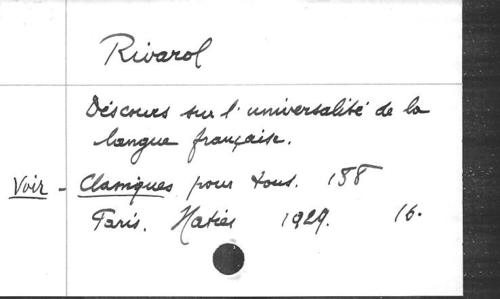 Rivarol
Discours sur l'universalité de la
langue française.
Voir - Classiques pour tous. 158
Paris. Hatier 1929. 16.